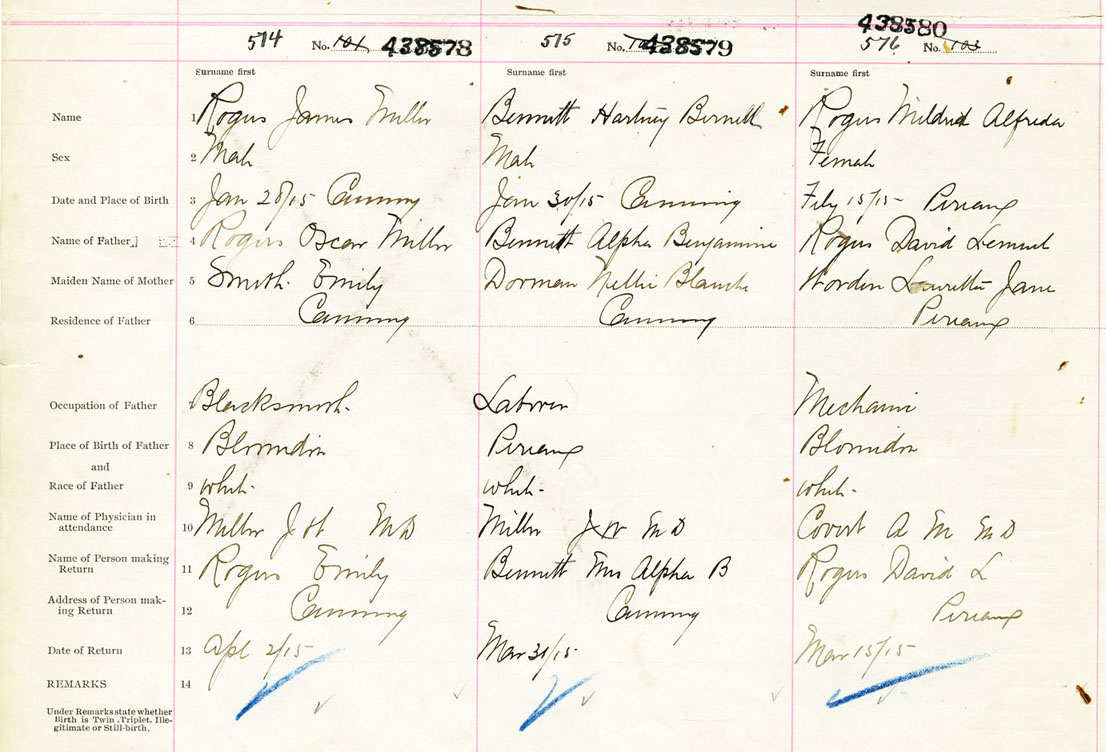 438580
574 No. 101 438578 575 No. 438579 576 No. 103
Surname first Surname first Surname first
Name 1 Rogers James Miller Bennett Hartney Burnell Rogers Mildred Alfreda
Sex 2 Male Male Female
Date and Place of Birth 3 Jan 28/15 Canning Jan 30/15 Canning Feby 15/15 Pereaux
Name of Father 4 Rogers Oscar Miller Bennett Alpha Benjamine Rogers David Lemuel
Maiden Name of Mother 5 Smith. Emily Dorman Nellie Blanche Worden Lauretta Jane
Residence of Father 6 Canning Canning Pereaux
Occupation of Father Blacksmith. Laborer Mechanic
Place of Birth of Father 8 Blomidon Pereaux Blomidon
and
Race of Father 9 White. White. White.
Name of Physician in
attendance 10 Miller J W M D Miller J W M D Covert A M M D
Name of Person making
Return 11 Rogers Emily Bennett Mrs Alpha B Rogers David L
Address of Person mak-
ing Return 12 Canning Canning Pereaux
Date of Return 13 Apl 2/15 Mar 31/15 Mar 15/15
REMARKS 14
Under Remarks state whether
Birth is Twin, Triplet, Ille-
gitimate or Still-birth.